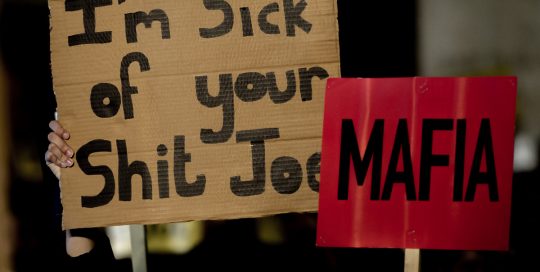 I'm Sick
of your
Shit Joe
MAFIA